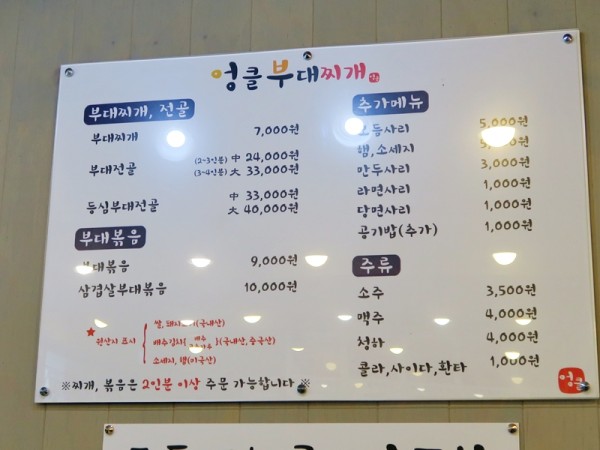 엉클 부대찌개
부대찌개, 전골
부대찌개 7,000원
부대전골 (2~3인분) 中 24,000원
(3~4인분) 大 33,000원
등심부대전골 中 33,000원
大 40,000원
부대볶음
부대볶음 9,000원
삼겹살부대볶음 10,000원
★ 원산지 표시
쌀, (국내산)
배추김치 (국내산, 중국산)
소세지, 햄(미국산)
※찌개, 볶음은 2인분 이상 주문 가능합니다※
추가메뉴
모듬사리 5,000원
햄,소세지
만두사리 3,000원
라면사리 1,000원
당면사리 1,000원
공기밥(추가) 1,000원
주류
소주 3,500원
맥주 4,000원
청하 4,000원
콜라,사이다,환타 1,000원